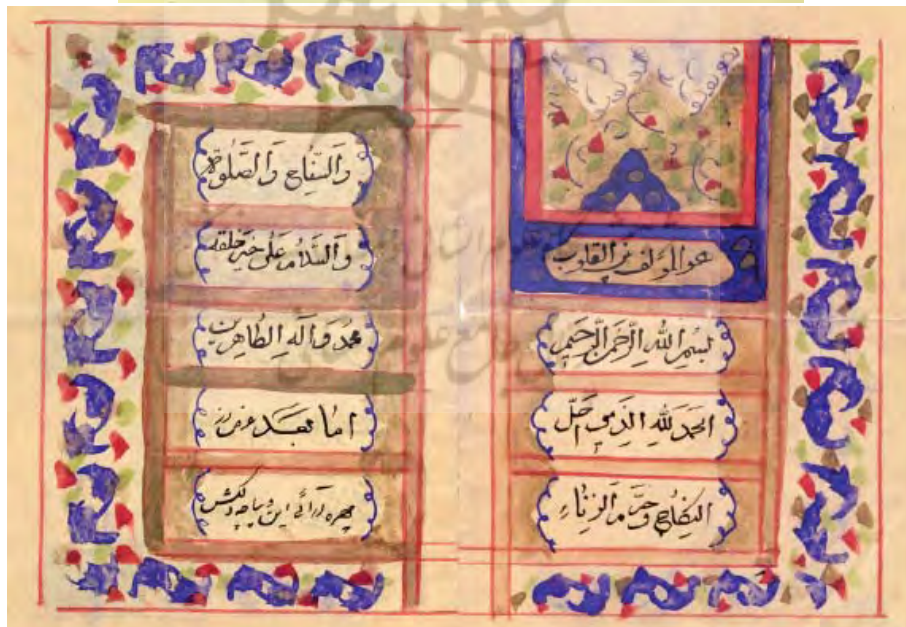 هو المؤلف بین القلوب
بِسْمِ اللّٰهِ الرَّحْمٰنِ الرَّحِیمِ
الحمد لِلّٰهِ الَّذِی اَحَلَّ
النِکٰاحَ وَ حَرَّمَ الزِنٰاءِ
وَالسِّفٰاحَ وَالصَّلٰوة
وَالسَّلامُ عَلٰی خَیرِ خَلقِه
محمد وَ آلهِ الطٰاهِرین
امّا بَعَد غرض از
چهره آرائی این دیباچه دلکش